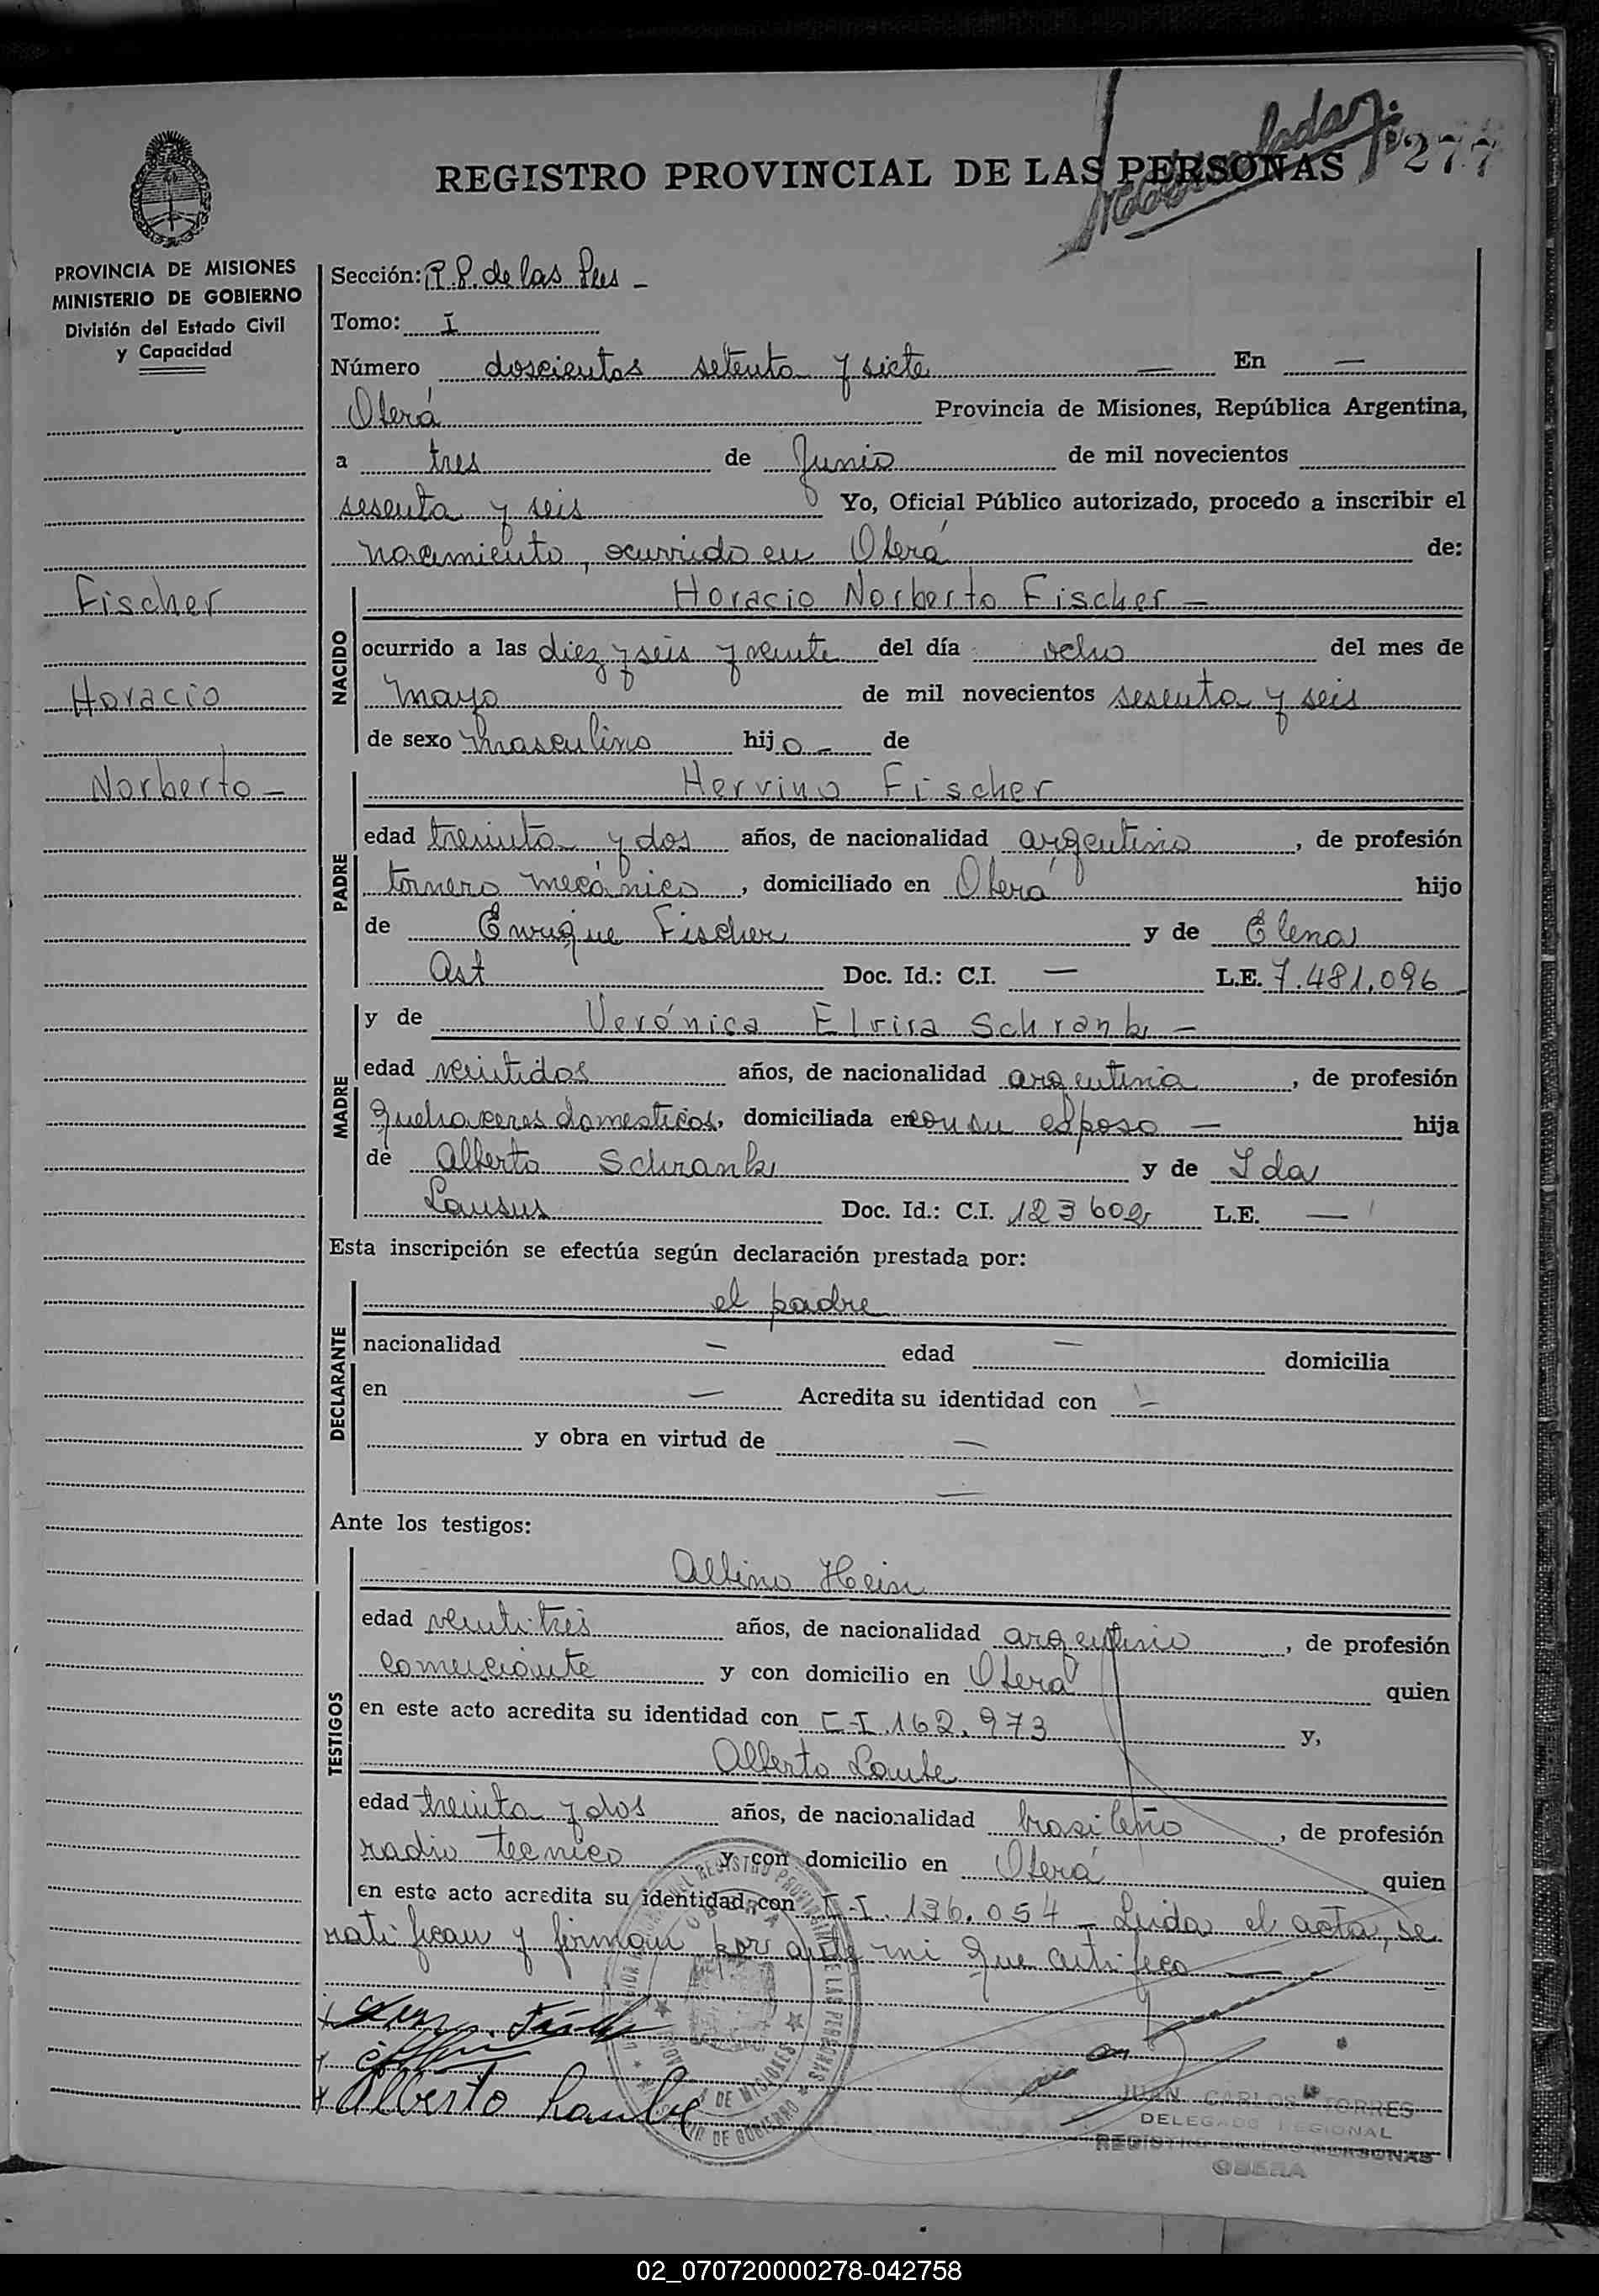 277
REGISTRO PROVINCIAL DE LAS PERSONAS
PROVINCIA DE MISIONES
MINISTERIO DE GOBIERNO
División del Estado Civil
y Capacidad
Fischer
Horacio
Norberto -
Sección: R. P. de las Pers -
Tomo: I
Número doscientos setenta y siete — En —
Oberá Provincia de Misiones, República Argentina,
a tres de Junio de mil novecientos
sesenta y seis Yo, Oficial Público autorizado, procedo a inscribir el
nacimiento, ocurrido en Oberá de:
NACIDO
Horacio Norberto Fischer -
ocurrido a las diez y seis y veinte del día ocho del mes de
mayo de mil novecientos sesenta y seis
de sexo masculino hijo - de
PADRE
Hervino Fischer
edad treinta y dos años, de nacionalidad argentino, de profesión
tornero mecánico, domiciliado en Oberá hijo
de Enrique Fischer y de Elena
Ast Doc. Id.: C.I. — L.E. 7.481.096
MADRE
y de Verónica Elvira Schrank -
edad veintidos años, de nacionalidad argentina, de profesión
quehaceres domesticos, domiciliada en con su esposo — hija
de Alberto Schrank y de Ida
Lausus Doc. Id.: C.I. 123602 L.E. —
Esta inscripción se efectúa según declaración prestada por:
DECLARANTE
el padre
nacionalidad — edad — domicilia
en — Acredita su identidad con —
y obra en virtud de —
—
Ante los testigos:
TESTIGOS
Albino Hein
edad veintitres años, de nacionalidad argentino, de profesión
comerciante y con domicilio en Oberá quien
en este acto acredita su identidad con C.I. 162.973 y,
Alberto Laube
edad treinta y dos años, de nacionalidad brasileño, de profesión
radio tecnico y con domicilio en Oberá quien
en este acto acredita su identidad con C.I. 136.054 - Leida el acta, se
ratifican y firman por ante mi que certifico —
Alberto Laube
JUAN CARLOS TORRES
DELEGADO REGIONAL
REGISTRO DE LAS PERSONAS
OBERA
02_070720000278-042758